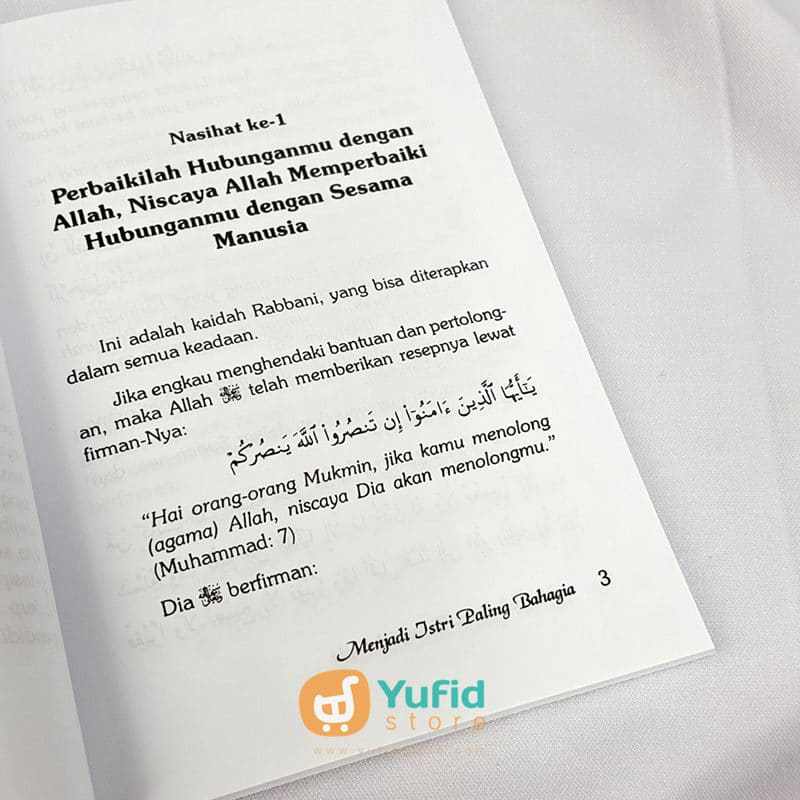 Nasihat ke-1
Perbaikilah Hubunganmu dengan
Allah, Niscaya Allah Memperbaiki
Hubunganmu dengan Sesama
Manusia
Ini adalah kaidah Rabbani, yang bisa diterapkan
dalam semua keadaan.
Jika engkau menghendaki bantuan dan pertolong-
an, maka Allah ﷻ telah memberikan resepnya lewat
firman-Nya:
يَٰٓأَيُّهَا ٱلَّذِينَ ءَامَنُوٓا۟ إِن تَنصُرُوا۟ ٱللَّهَ يَنصُرْكُمْ
“Hai orang-orang Mukmin, jika kamu menolong
(agama) Allah, niscaya Dia akan menolongmu.”
(Muhammad: 7)
Dia ﷻ berfirman:
Menjadi Istri Paling Bahagia 3
Yufid
store